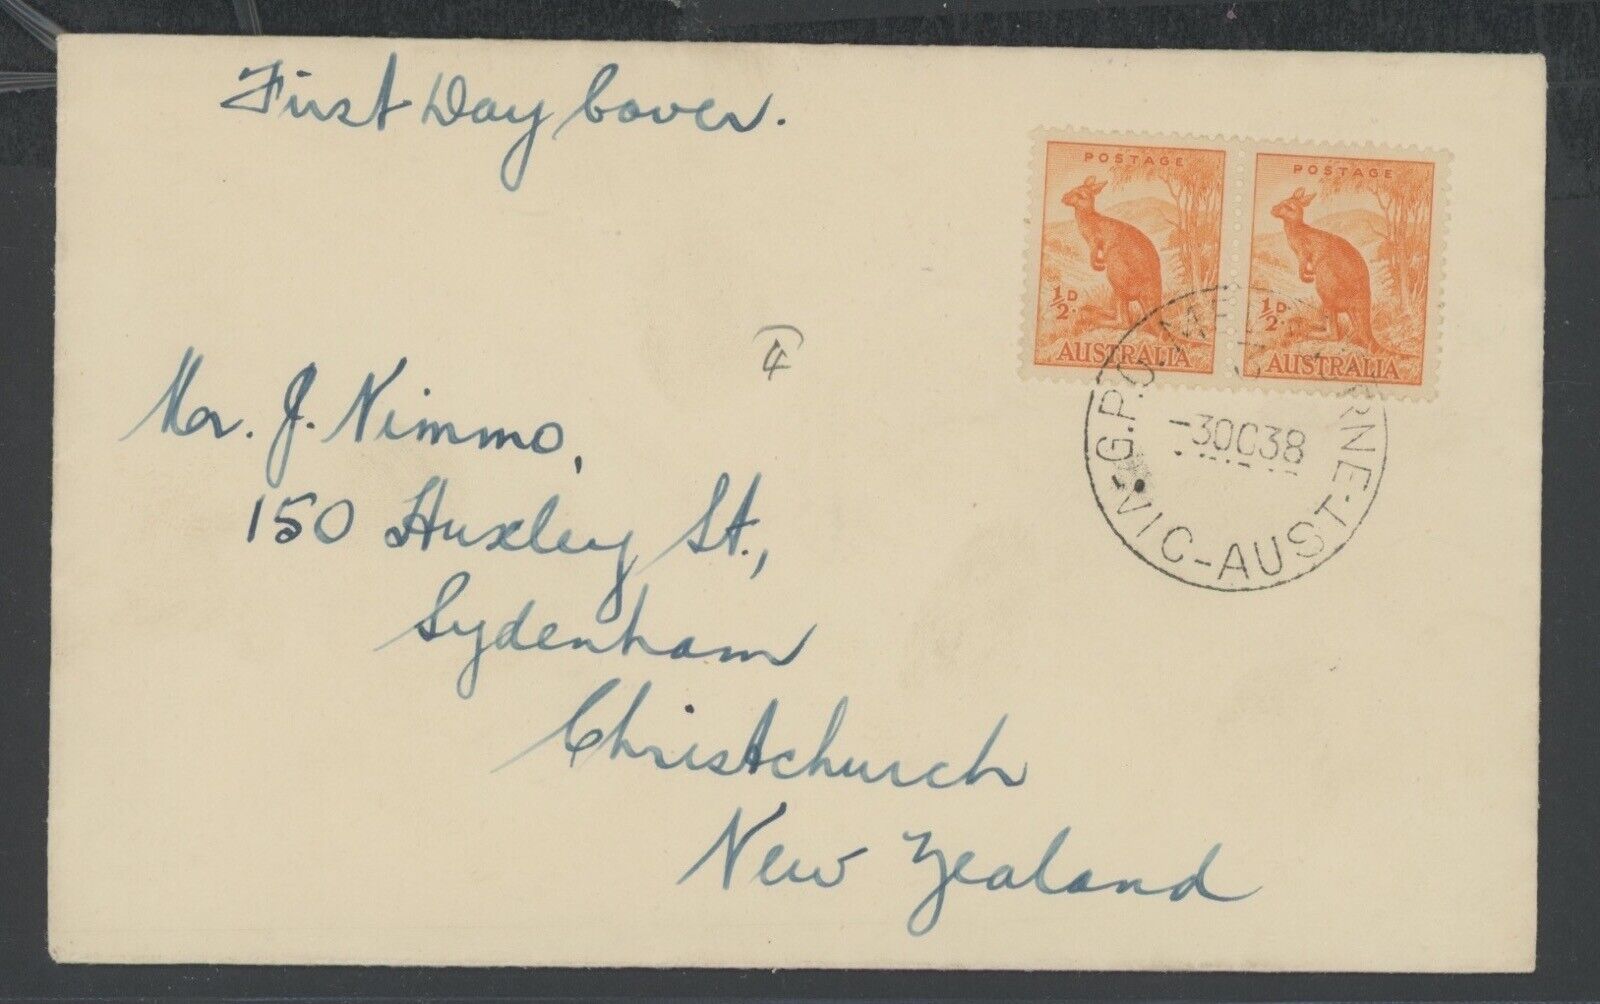 First Day Cover.
POSTAGE
½D.
AUSTRALIA
POSTAGE
½D.
AUSTRALIA
G.P.O. MELBOURNE
-3OC38
VIC-AUST
4
Mr. J. Nimmo,
150 Huxley St.,
Sydenham
Christchurch
New Zealand